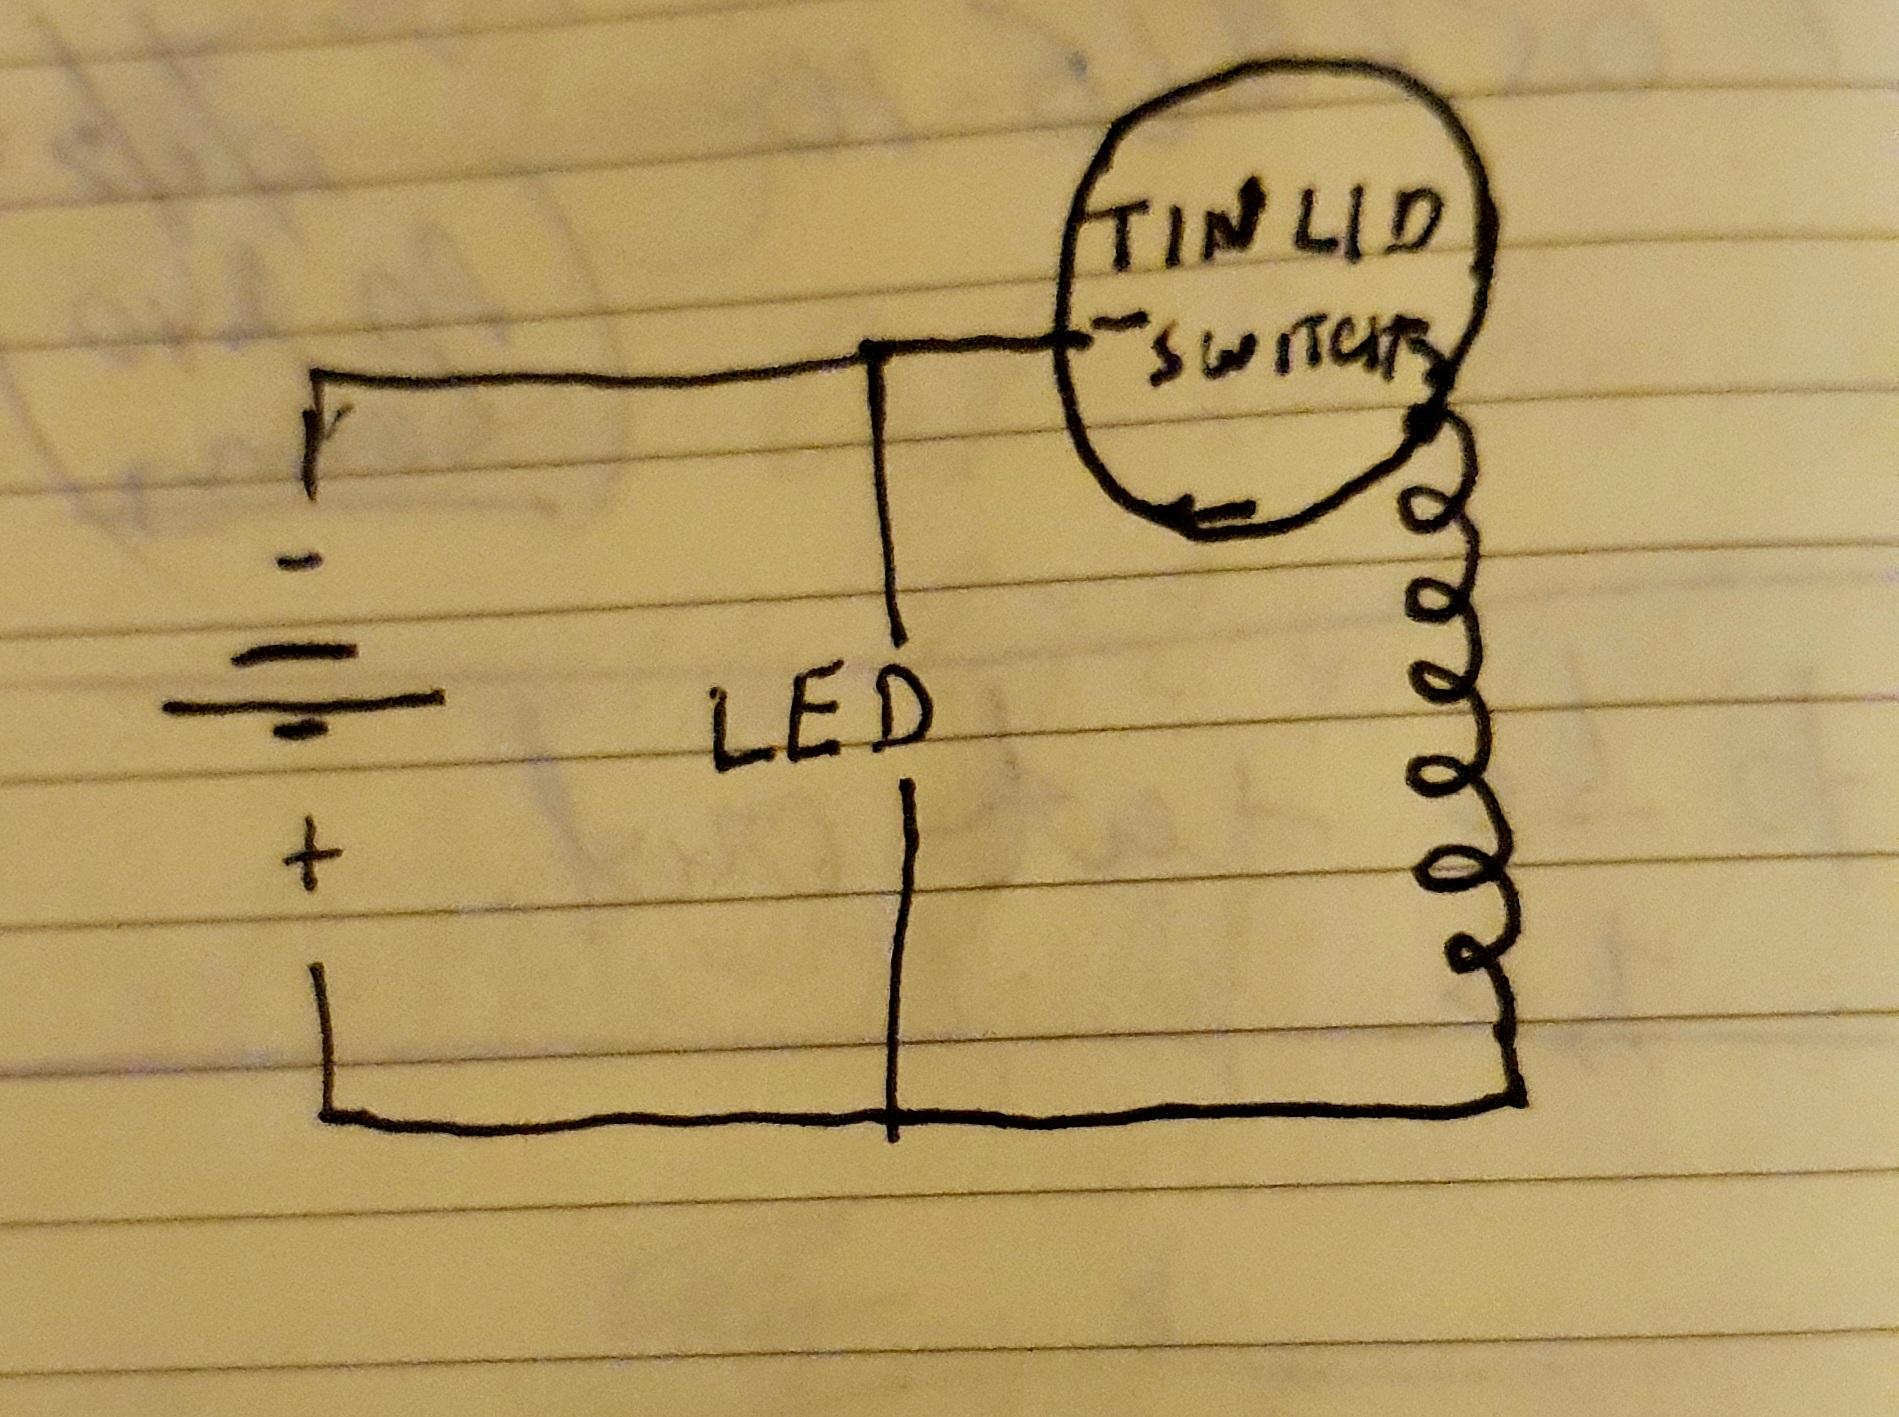 TIN LID
SWITCH
-
LED
+